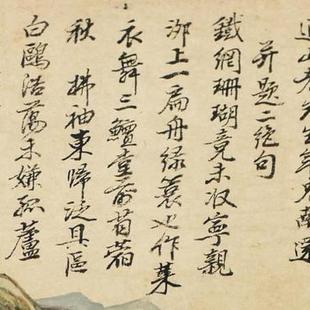 山先生東南還
并題二絕句
鐵網珊瑚竟未收寧親
泖上一扁舟綠蓑也作萊
衣舞三鱣堂前苜蓿
秋 拂袖東歸泛具區
白鷗浩蕩未嫌孤蘆